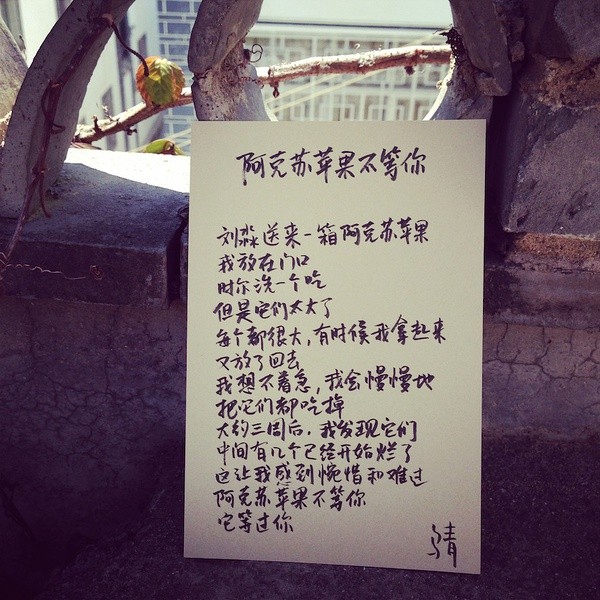 阿克苏苹果不等你
刘淼送来一箱阿克苏苹果
我放在门口
时尔洗一个吃
但是它们太大了
每个都很大,有时候我拿起来
又放了回去
我想不着急,我会慢慢地
把它们都吃掉
大约三周后,我发现它们
中间有几个已经开始烂了
这让我感到惋惜和难过
阿克苏苹果不等你
它等过你